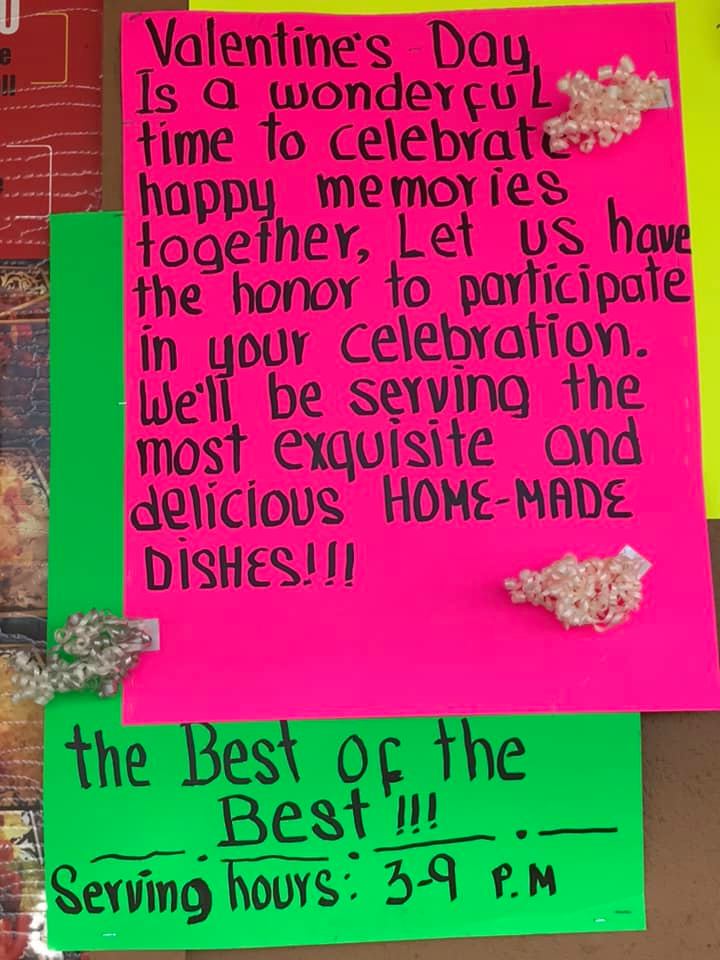 Valentine's Day
Is a wonderful
time to celebrate
happy memories
together, Let us have
the honor to participate
in your celebration.
We'll be serving the
most exquisite and
delicious HOME-MADE
DISHES!!!
the Best of the
Best !!!
Serving hours: 3-9 P.M